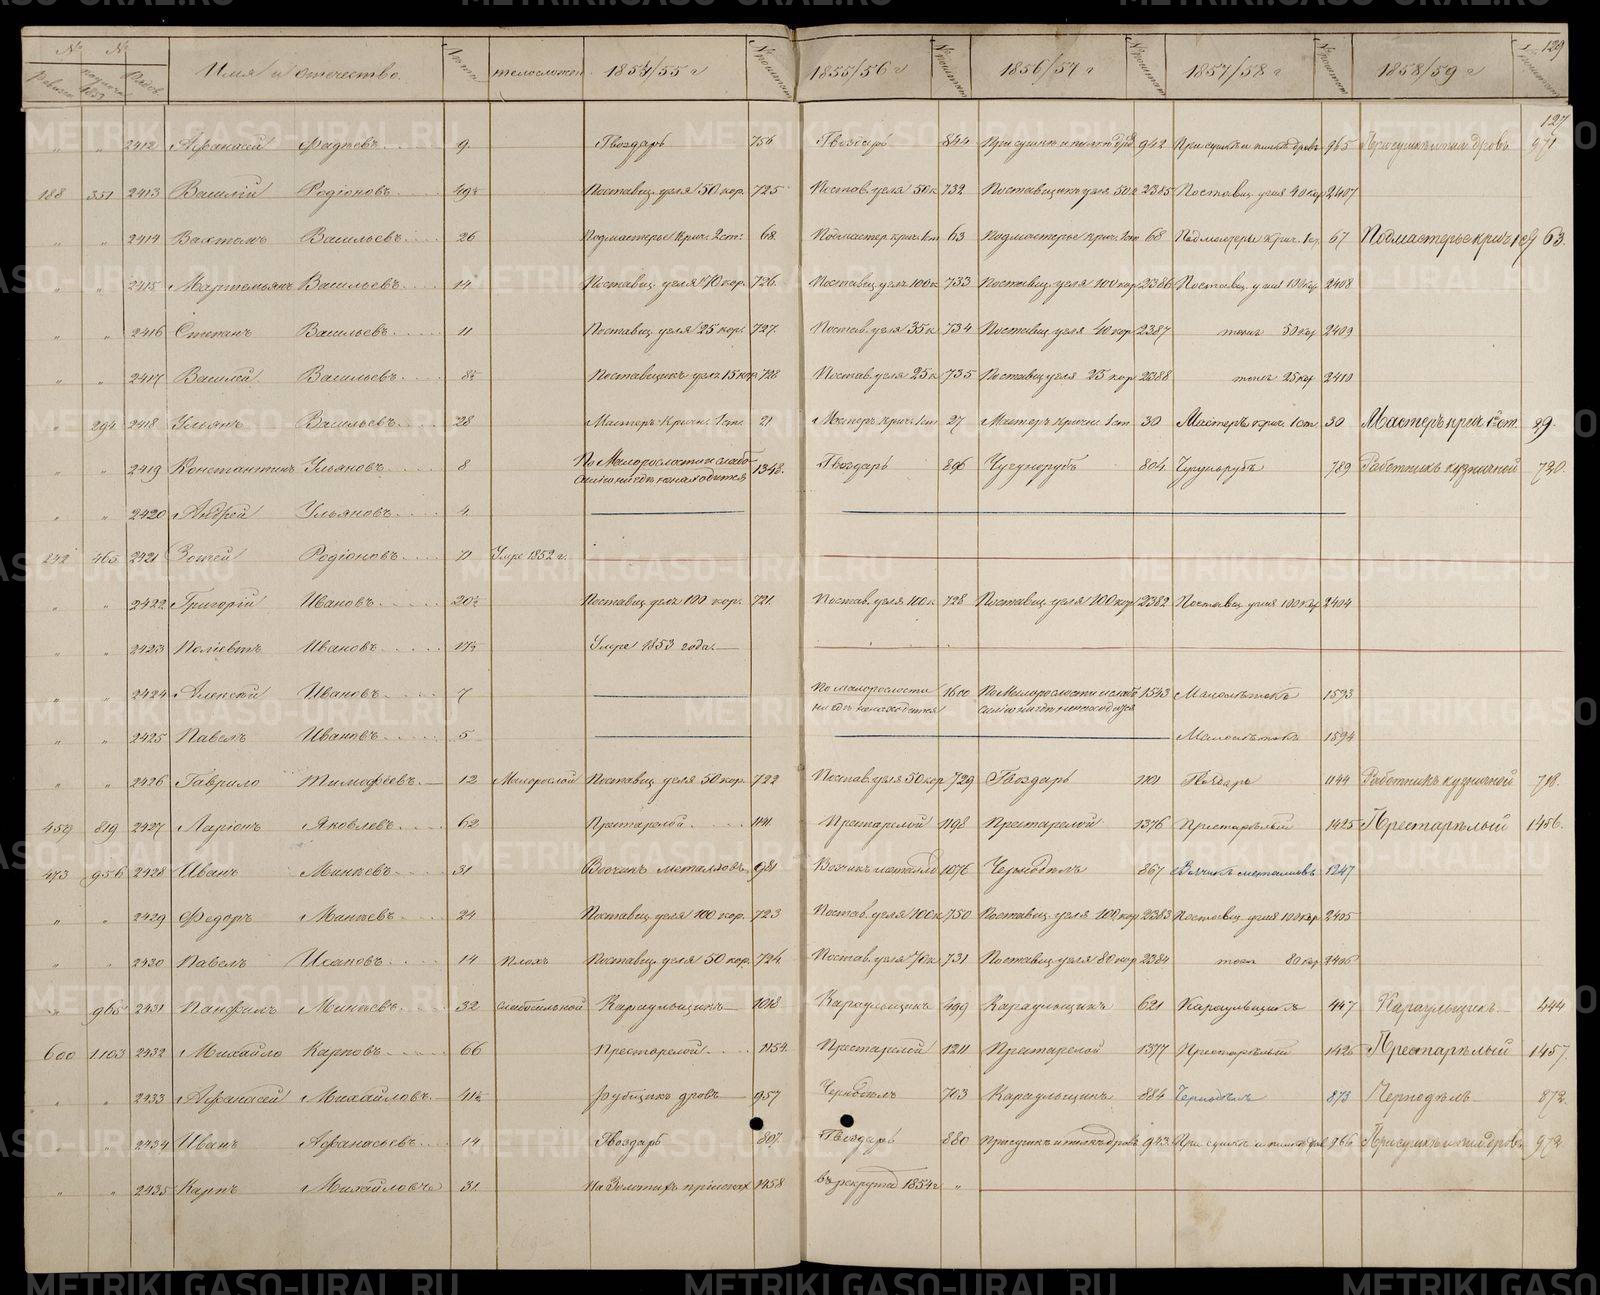 № № Имя и отчество. Лѣта телосложен. 1854/55 г 1855/56 г 1856/57 г 1857/58 г 1858/59 г 129
127
" " 2412 Афанасей Фадѣевъ 9 Гвоздарь 756 Гвоздарь 844 942 965 971
188 351 2413 Василій Родіоновъ 49½ Поставщ. угля 50 кор. 725 Постав. угля 50 к 732 Поставщикъ угля 50 к 2385 Поставщ. угля 40 кор 2407
" " 2414 Вахтомъ Васильевъ 26 Подмастерье Крич. 2 ст. 68 Подмастер. крич. 1 ст 63 Подмастерье крич. 1 ст 68 Подмастерье Крич. 1 ст. 67 Подмастерье крич 63.
" " 2415 Мартемьянъ Васильевъ 14 Поставщ. угля 70 кор. 726 Постав. угля 100 к 733 Поставщ. угля 100 кор 2386 Поставщ. угля 100 кор 2408
" " 2416 Степанъ Васильевъ 11 Поставщ. угля 25 кор. 727 Постав. угля 35 к 734 Поставщ угля 40 кор 2387 тоже 50 кор 2409
" " 2417 Василей Васильевъ 8½ Поставщикъ угля 15 кор 728 Постав. угля 25 к 735 Поставщ угля 25 кор 2388 тоже 25 кор 2410
" 294 2418 Ульянъ Васильевъ 28 Мастеръ Кричн. 1 ст. 21 Мастеръ крич. 1 ст 27 Мастеръ кричн. 1 ст 30 Мастеръ крич. 1 ст 30 Мастеръ крич 1 ст. 29.
" " 2419 Константинъ Ульяновъ 8 По Малорослости и слабо- 1348. Гвоздарь 896 Чугунорубъ 804 Чугунорубъ 789 Работникъ кузничной 720.
силію нигдѣ не находится
" " 2420 Андрей Ульяновъ 4
242 465 2421 Зотей Родіоновъ Умре 1852 г.
" " 2422 Григорій Ивановъ 20½ Поставщ угля 100 кор. 721 Постав. угля 100 к 728 Поставщ. угля 100 кор 2382 Поставщ угля 100 кор 2404
" " 2423 Поліевтъ Ивановъ 17½ Умре 1853 года.
" " 2424 Алексѣй Ивановъ 7 По малорослости 1600 По Малорослости и слабо 1543 Малолѣтокъ 1593
нигдѣ не находится силію нигдѣ не находится
" " 2425 Павелъ Ивановъ 5 Малолѣтокъ 1594
" " 2426 Гаврило Тимофеевъ 12 Малорослой Поставщ угля 50 кор. 722 Постав. угля 50 кор 729 Гвоздарь 1101 Гвоздарь 1144 Работникъ кузничной 718.
459 819 2427 Ларіонъ Яковлевъ 62 Престарелой 1141 Престарелой 1198 Престарелой 1376 Престарѣлый 1425 Престарѣлый 1456.
473 956 2428 Иванъ Минѣевъ 31 Возчикъ металловъ 981 Возчикъ металло 1076 Чернодѣлъ 867 Возчикъ металловъ 1247
" " 2429 Федоръ Минѣевъ 24 Поставщ. угля 100 кор. 723 Постав. угля 100 к 730 Поставщ. угля 100 кор 2383 Поставщ. угля 100 кор. 2405
" " 2430 Павелъ Исаковъ 14 плохъ Поставщ. угля 50 кор. 724 Постав. угля 70 к 731 Поставщ угля 80 кор 2384 тоже 80 кор 2406
" 965 2431 Панфилъ Минѣевъ 32 слабосильной Караульщикъ 1018 Караульщикъ 499 Караульщикъ 621 Караульщикъ 447 Караульщикъ 444
600 1103 2432 Михайло Карповъ 66 Престарелой 1154 Престарелой 1211 Престарелой 1377 Престарѣлый 1426 Престарѣлый 1457.
" " 2433 Афанасей Михайловъ 41½ Рубщикъ дровъ 957 Чернодѣлъ 703 Караульщикъ 884 Чернодѣлъ 873 Чернодѣлъ 872.
" " 2434 Иванъ Афанасьевъ 14 Гвоздарь 807. Гвоздарь 880 943 966 972
" " 2435 Карпъ Михайловъ 31 На Золотыхъ пріискахъ 1458 въ рекруты 1854 г "
METRIKI.GASO-URAL.RU